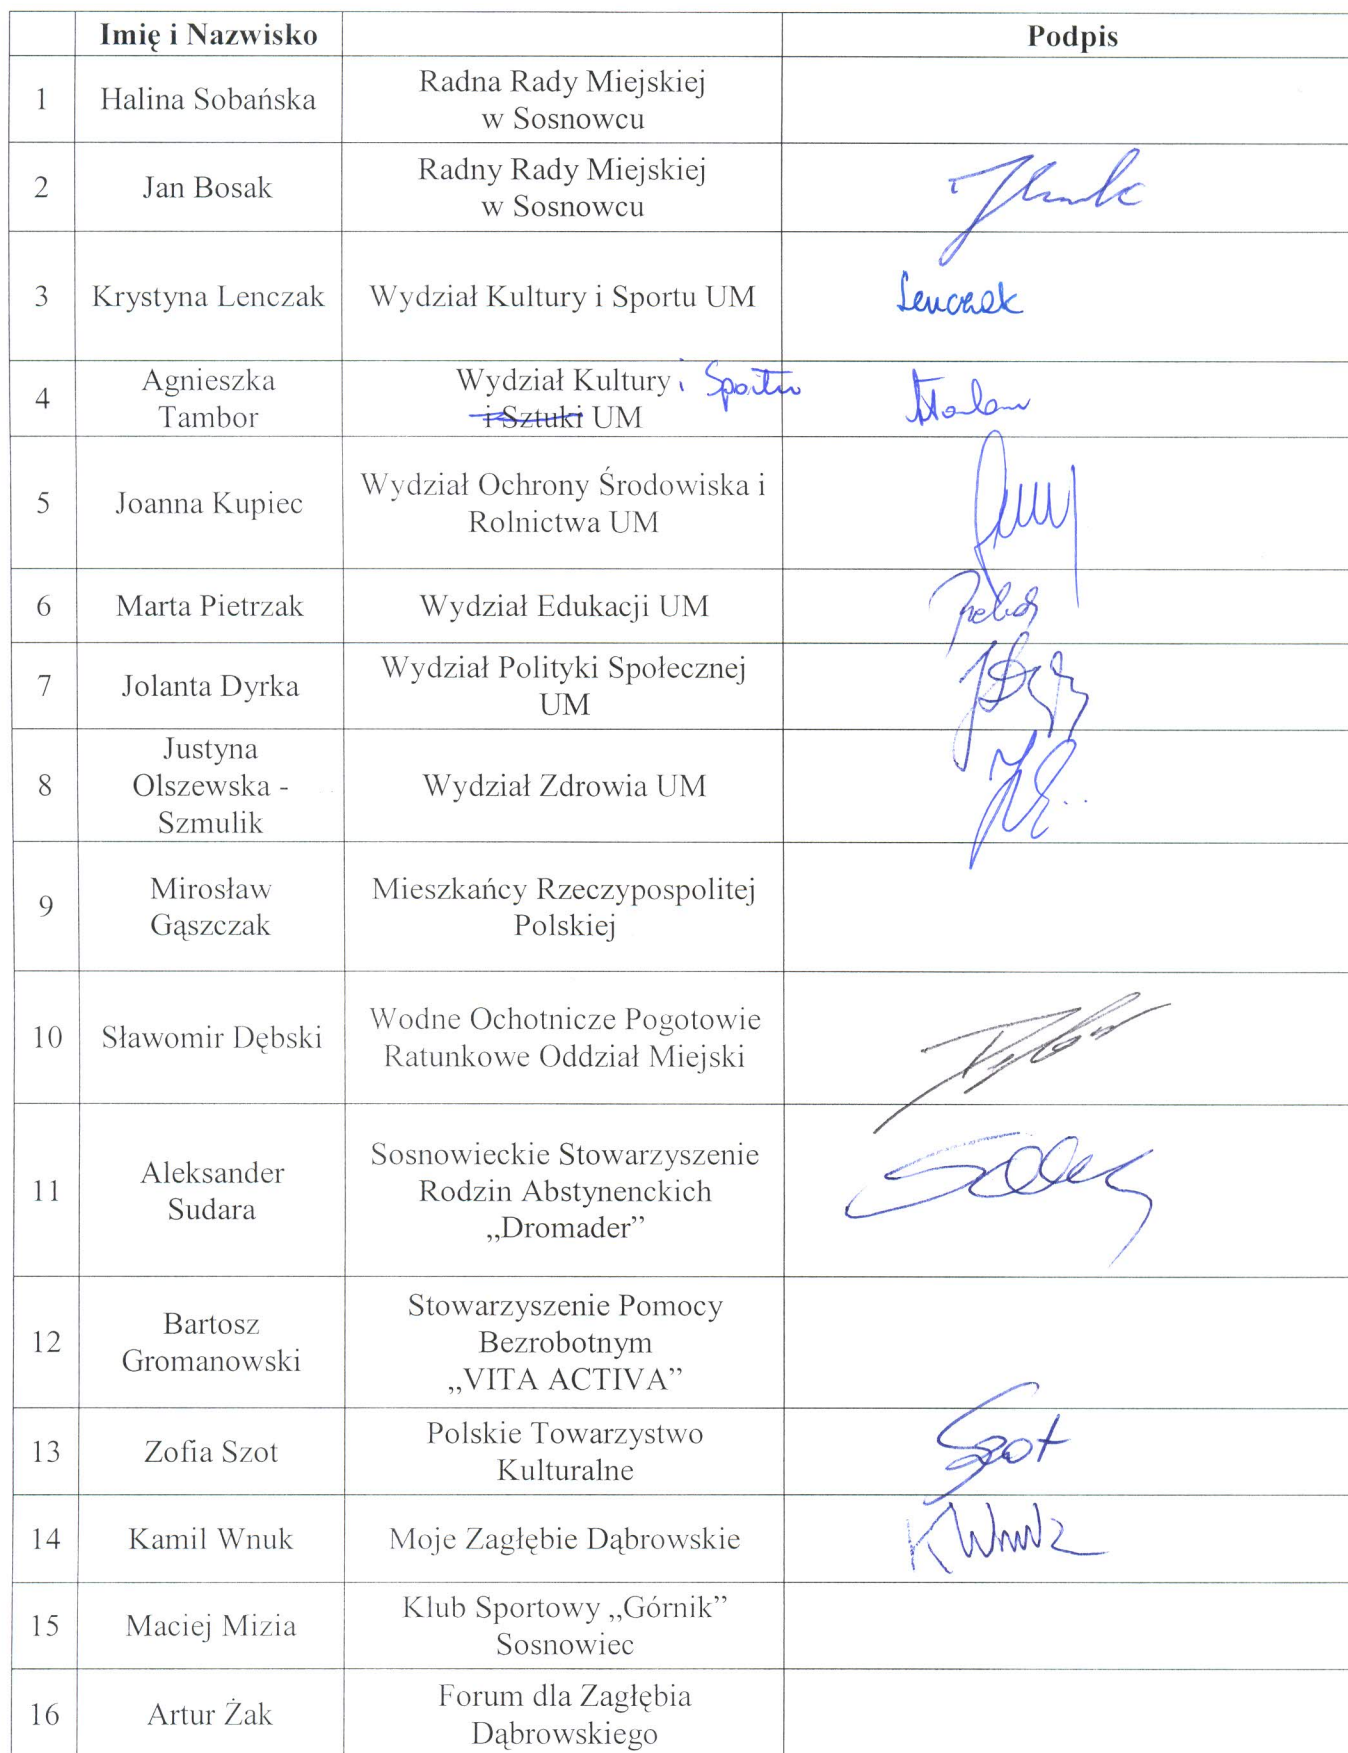 Imię i Nazwisko Podpis
1 Halina Sobańska Radna Rady Miejskiej
w Sosnowcu
2 Jan Bosak Radny Rady Miejskiej
w Sosnowcu
3 Krystyna Lenczak Wydział Kultury i Sportu UM Lenczak
4 Agnieszka
Tambor Wydział Kultury i Sportu
i Sztuki UM
5 Joanna Kupiec Wydział Ochrony Środowiska i
Rolnictwa UM
6 Marta Pietrzak Wydział Edukacji UM
7 Jolanta Dyrka Wydział Polityki Społecznej
UM
8 Justyna
Olszewska -
Szmulik Wydział Zdrowia UM
9 Mirosław
Gąszczak Mieszkańcy Rzeczypospolitej
Polskiej
10 Sławomir Dębski Wodne Ochotnicze Pogotowie
Ratunkowe Oddział Miejski
11 Aleksander
Sudara Sosnowieckie Stowarzyszenie
Rodzin Abstynenckich
„Dromader”
12 Bartosz
Gromanowski Stowarzyszenie Pomocy
Bezrobotnym
„VITA ACTIVA”
13 Zofia Szot Polskie Towarzystwo
Kulturalne Szot
14 Kamil Wnuk Moje Zagłębie Dąbrowskie K Wnuk
15 Maciej Mizia Klub Sportowy „Górnik”
Sosnowiec
16 Artur Żak Forum dla Zagłębia
Dąbrowskiego